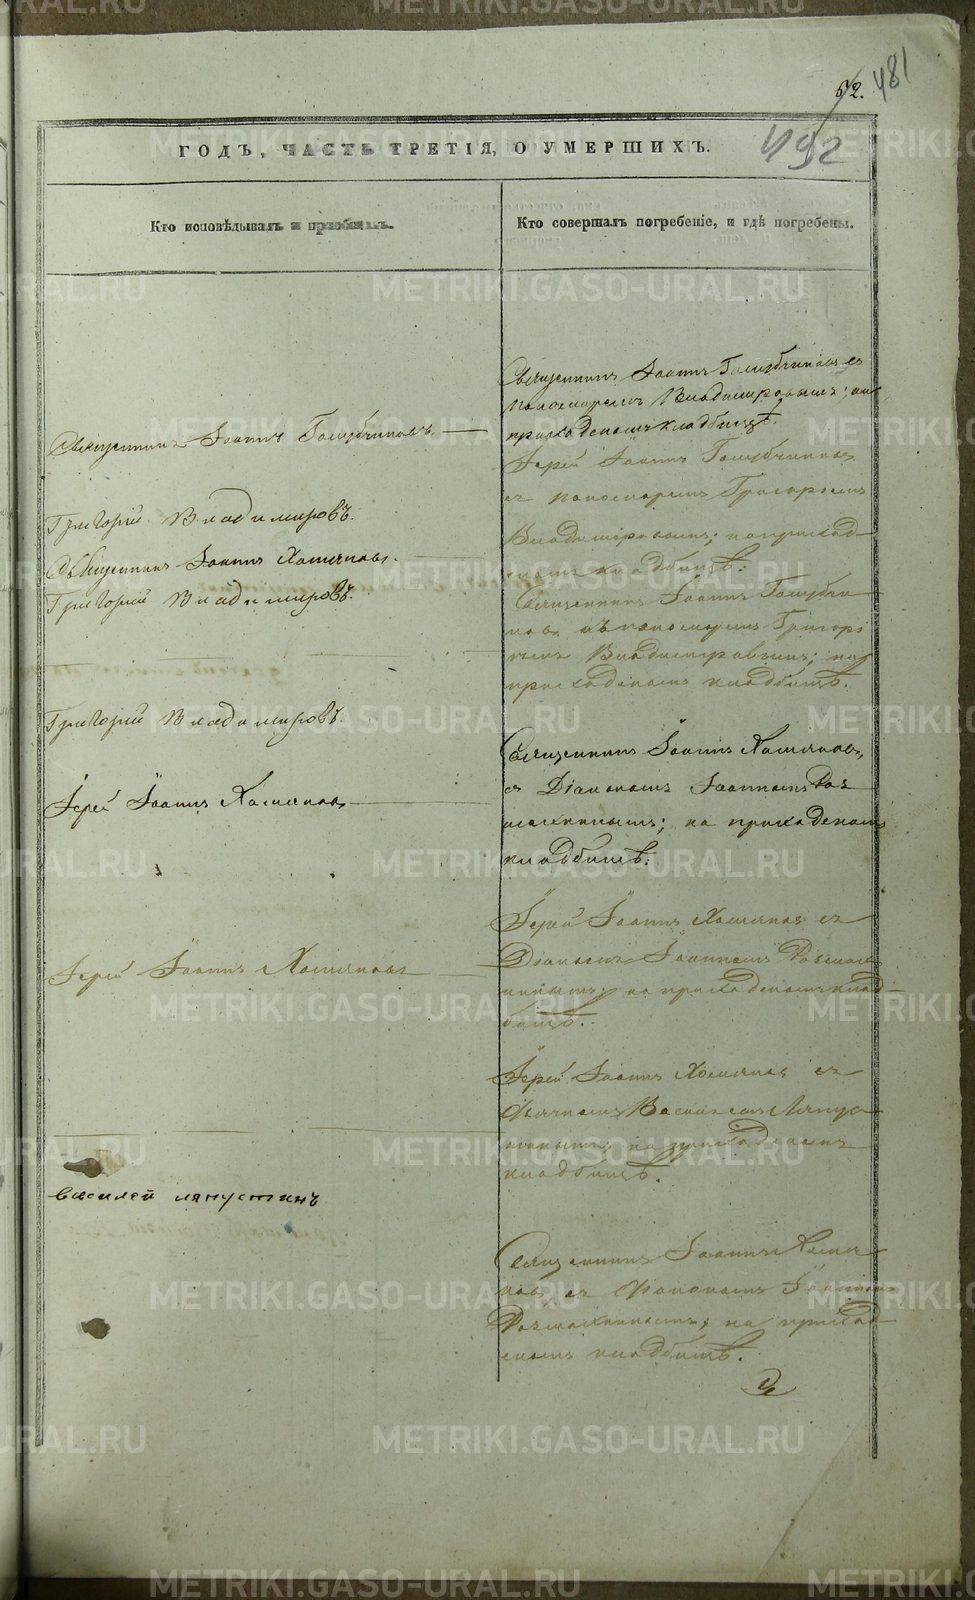 52. 481
492
ГОДЪ, ЧАСТЬ ТРЕТІЯ, О УМЕРШИХЪ.
Кто исповѣдывалъ и пріобщалъ.
Кто совершалъ погребеніе, и гдѣ погребены.
Священникъ Іоаннъ Голубчиковъ
Григорій Владимировъ.
Священникъ Іоаннъ Хомяковъ.
Григорій Владимировъ.
Григорій Владимировъ.
Іерей Іоаннъ Хомяковъ
Іерей Іоаннъ Хомяковъ
василей ляпустинъ
Священникъ Іоаннъ Голубчиковъ съ
пономаремъ Владимировымъ; на
приходскомъ кладбищѣ.
Іерей Іоаннъ Голубчиковъ
съ пономаремъ Григоріемъ
Владиміровымъ; на приход-
скомъ кладбищѣ.
Священникъ Іоаннъ Голубчи
ковъ съ пономаремъ Григорі
емъ Владимировымъ; на
приходскомъ кладбищѣ.
Священникъ Іоаннъ Хомяковъ,
съ Діакономъ Іоанномъ
на приходскомъ
кладбищѣ.
Іерей Іоаннъ Хомяковъ съ
Діакономъ Іоанномъ
на приходскомъ клад-
бищѣ.
Іерей Іоаннъ Хомяковъ съ
Дьячкомъ Василіемъ Ляпус
тинымъ; на приходскомъ
кладбищѣ.
Священникъ Іоаннъ Хомя
ковъ съ Діакономъ Іоанномъ
на приход-
скомъ кладбищѣ.
METRIKI.GASO-URAL.RU